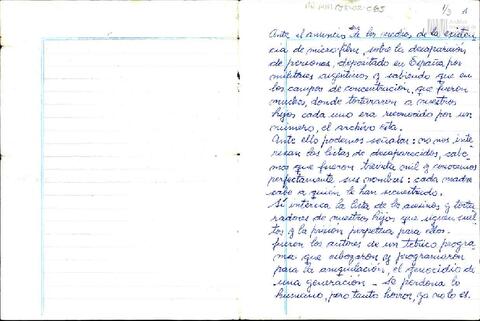 1/3
Ante el anuncio de los medios de la existen-
cia de microfilms, sobre la desaparición
de personas, depositado en España por
militares argentinos y sabiendo que en
los campos de concentración, que fueron
muchos, donde torturaron a nuestros
hijos cada uno era reconocido por un
número, el archivo esta.
Ante ello podemos señalar: no nos inte-
resan las listas de desaparecidos, sabe-
mos que fueron treinta mil y conocemos
perfectamente sus nombres: cada madre
sabe a quién le han secuestrado.
Sí interesa la lista de los asesinos y tortu-
radores de nuestros hijos que siguen suel-
tos y la prisión perpetua para ellos.
fueron los autores de un tétrico progra-
ma que elaboraron y programaron
para la aniquilación, el genocidio de
una generación - Se perdona lo
humano, pero tanto horror, ya no lo es.